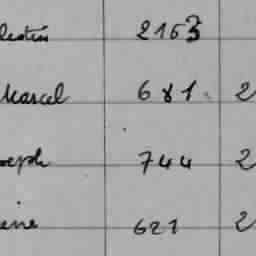 lestin 2163
Marcel 681 2
oseph 744 2
ene 621 2